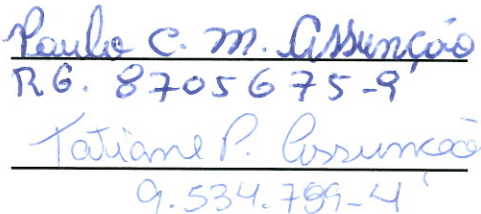 Paulo C. M. Assunção
RG. 8705675-9
Tatiane P. Assunção
9.534.799-4